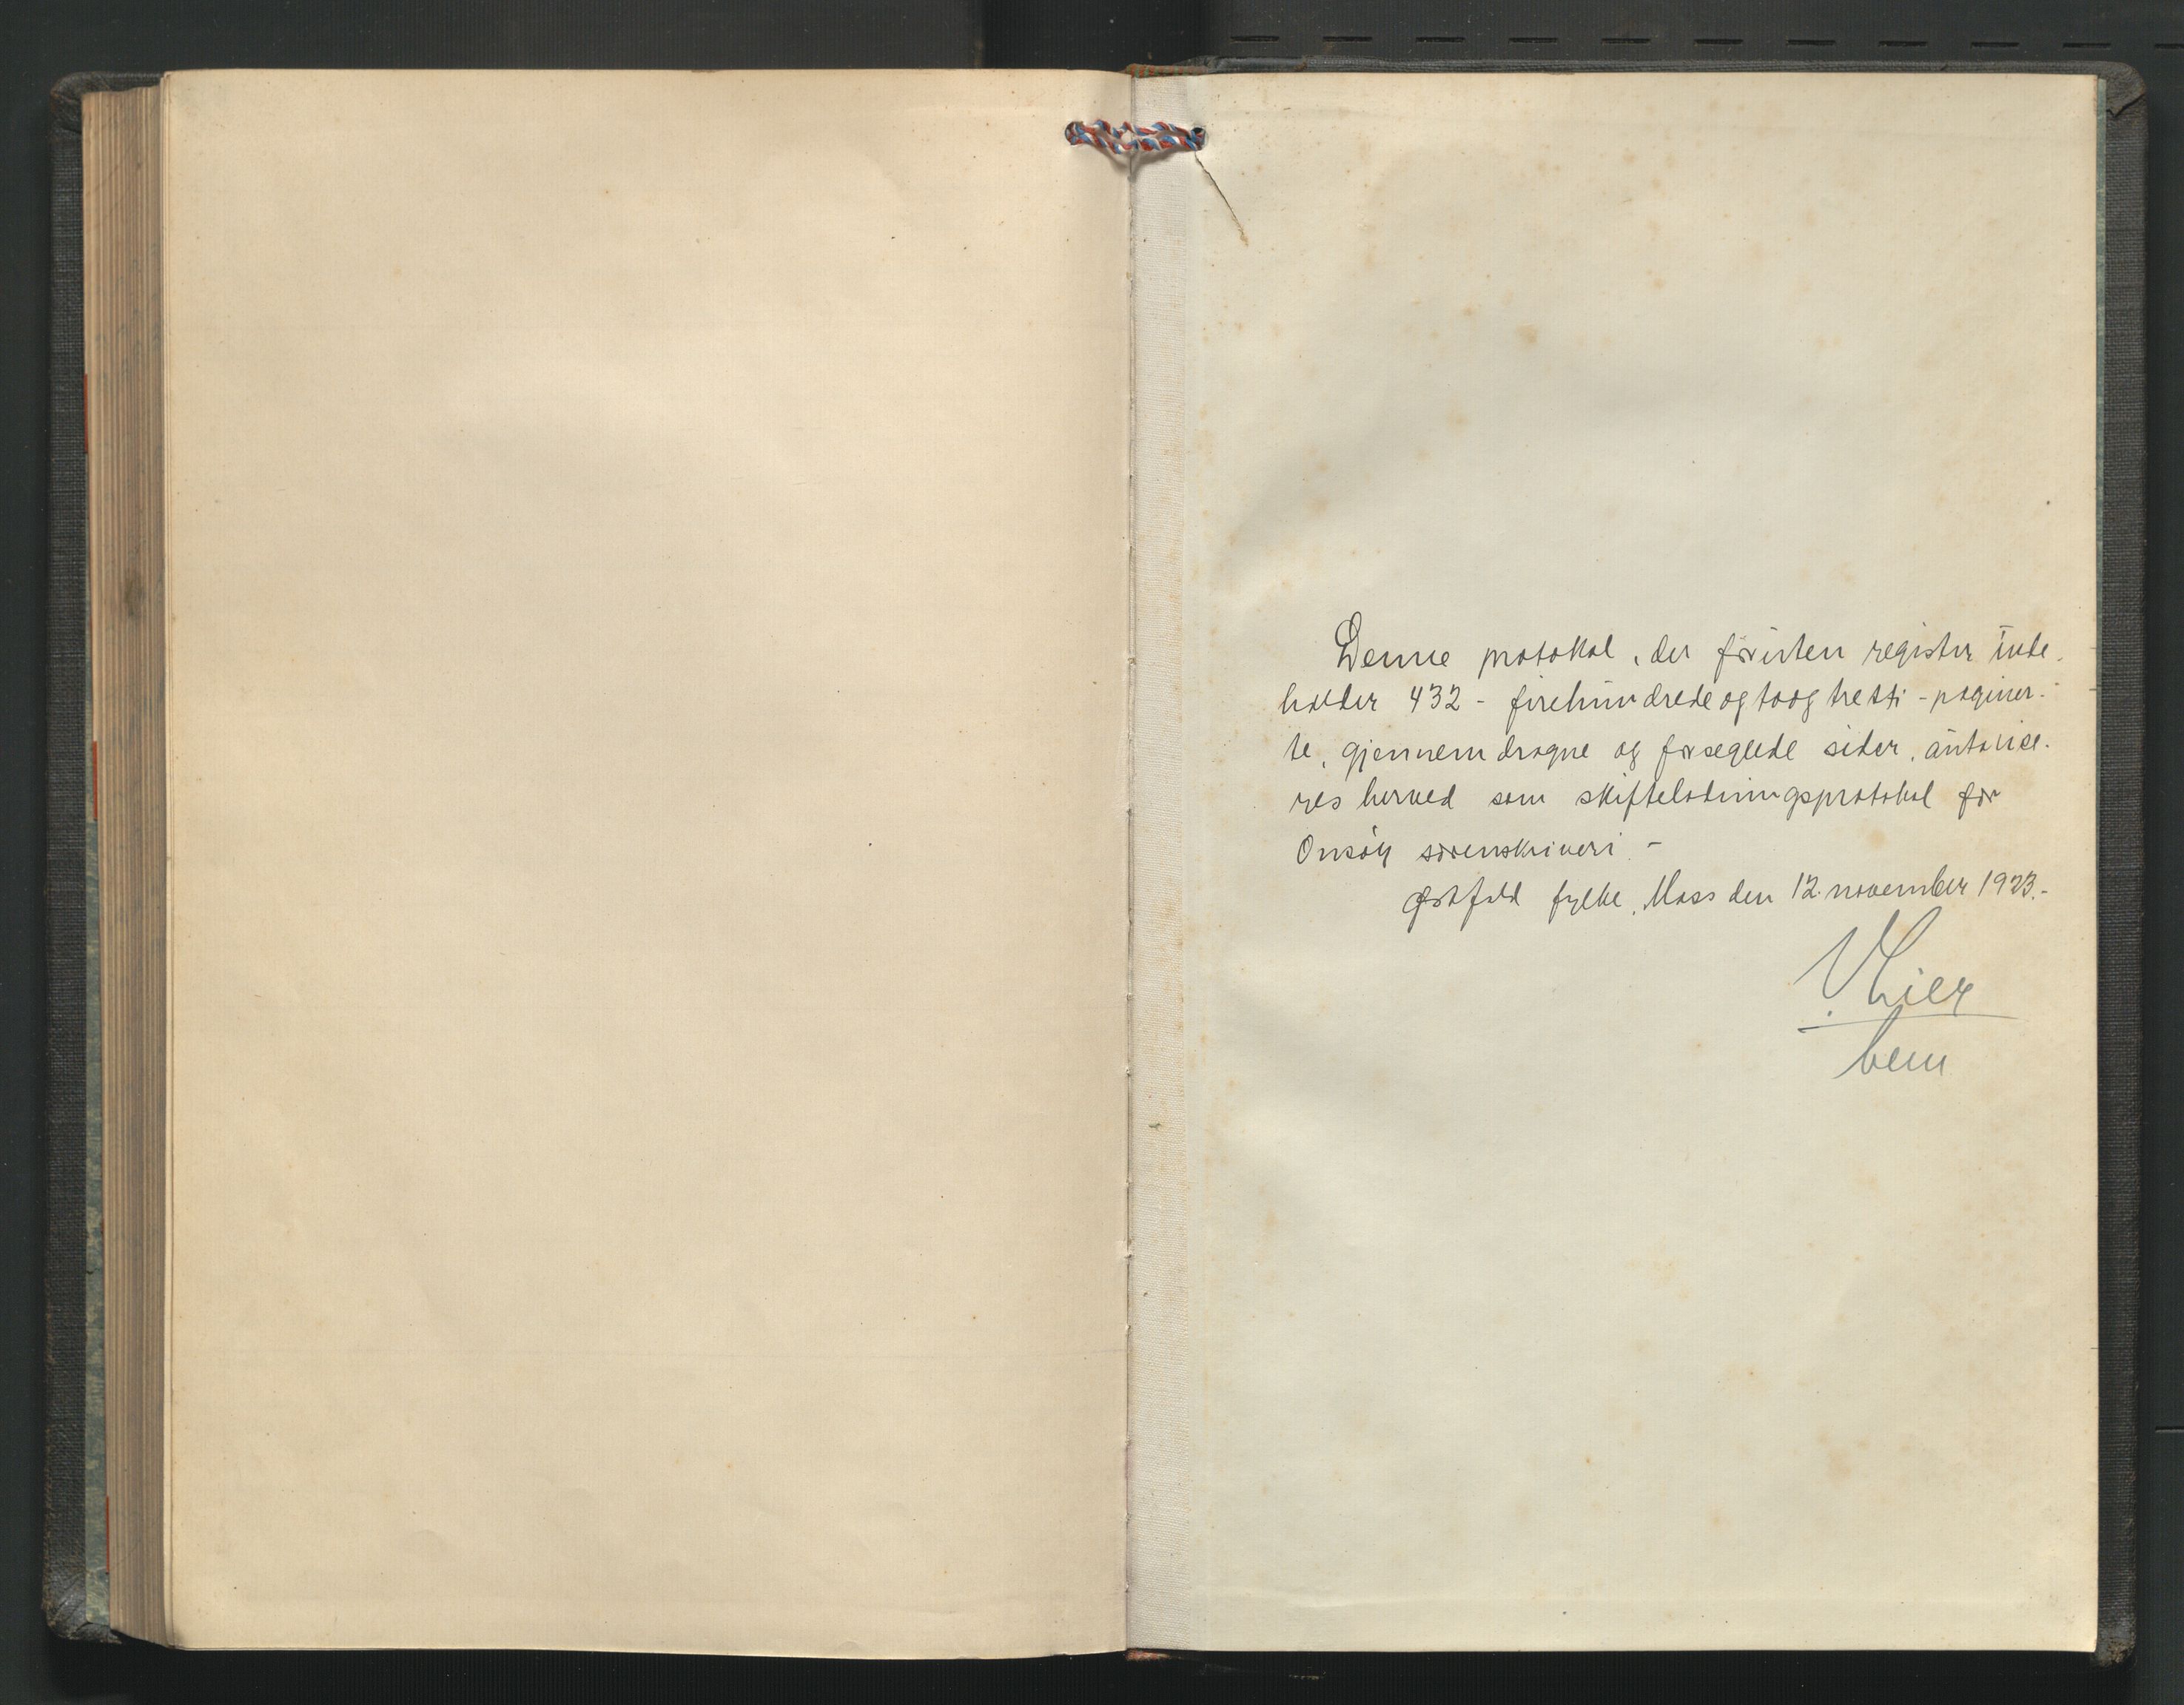 Denne protokol, der foruten register inde-
holder 432 - firehundrede og to og tretti - paginer-
te, gjennemdragne og forseglede sider, autorise-
res herved som skifteutlodningsprotokol for
Onsøy sorenskriveri. -
Østfold fylke, Moss den 12. november 1923. -